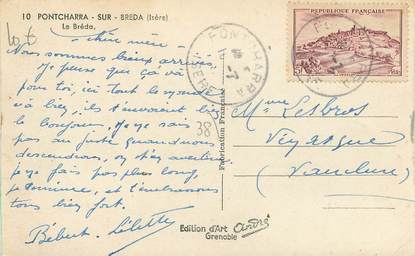 10 PONTCHARRA - SUR - BREDA (Isère)
Le Bréda.
chère mère
Nous sommes bien arrivés
Je pense que ça va
pour toi, ici tout le monde
va bien, ils t'envoient
le bonjour, Je ne sais
pas au juste quand nous
descendrons, on t'en avertira
je fais pas plus long,
je termine, et t'embrassons
tous bien fort.
Bébert. Lilette
38
Edition d'Art André
Grenoble
Fabrication Française
REPUBLIQUE FRANÇAISE
PONTCHARRA
ISERE
Mme Lesbros
Vaucluse